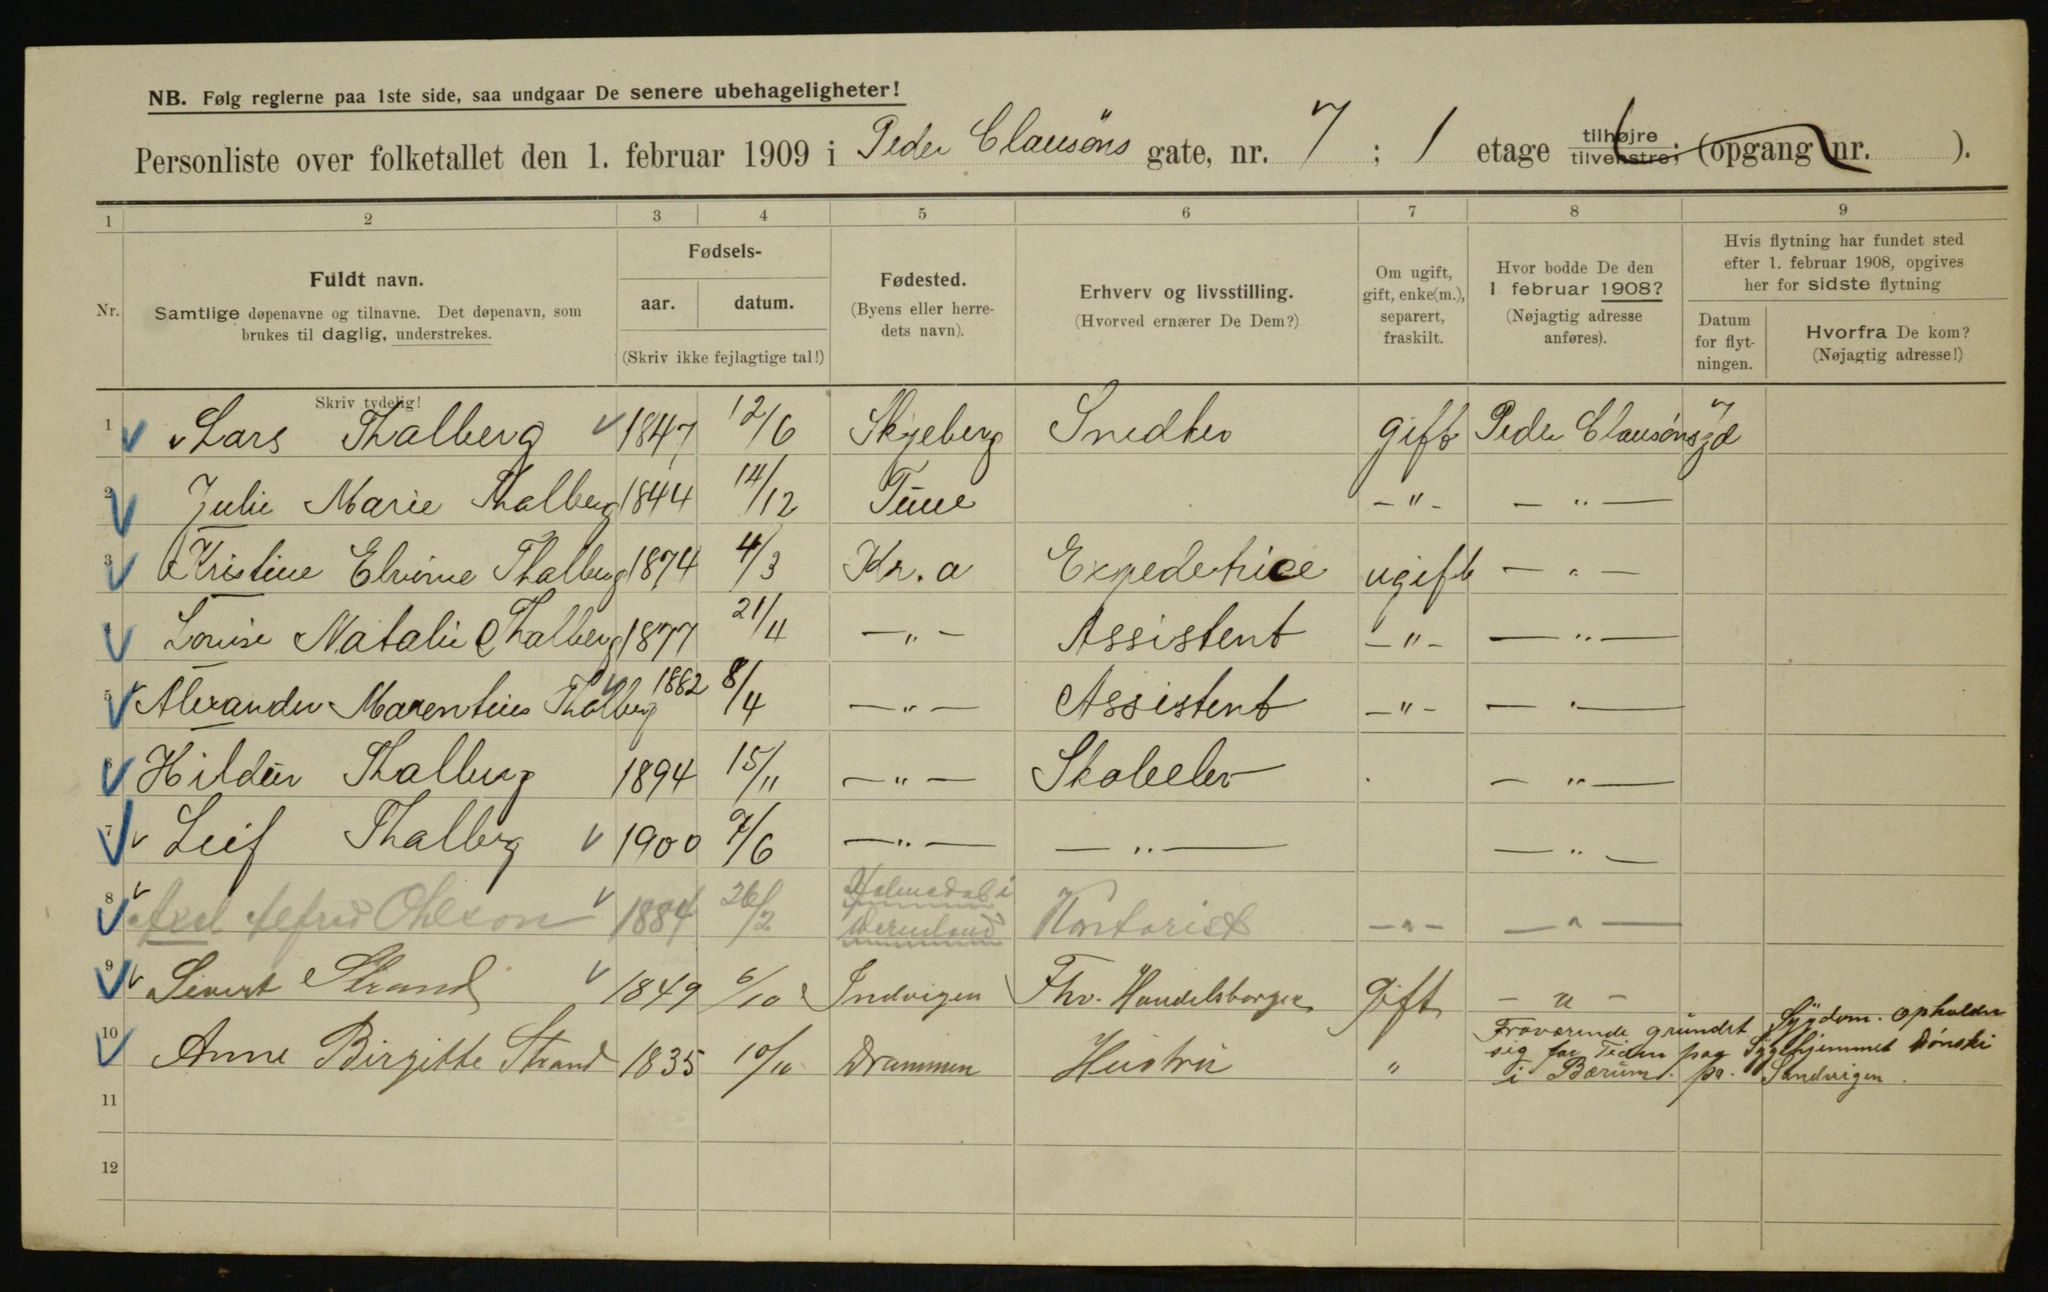 NB. Følg reglerne paa 1ste side, saa undgaar De senere ubehageligheter!
Personliste over folketallet den 1. februar 1909 i Peder Clausøns gate, nr. 7 ; 1 etage tilhøjre tilvenstre; (opgang nr. ).
1 2 3 4 5 6 7 8 9
Nr. Fuldt navn. Samtlige døpenavne og tilnavne. Det døpenavn, som brukes til daglig, understrekes.
Fødsels- aar. datum. (Skriv ikke fejlagtige tal!)
Fødested. (Byens eller herredets navn).
Erhverv og livsstilling. (Hvorved ernærer De Dem?)
Om ugift, gift, enke(m.), separert, fraskilt.
Hvor bodde De den 1 februar 1908? (Nøjagtig adresse anføres).
Hvis flytning har fundet sted efter 1. februar 1908, opgives her for sidste flytning
Datum for flytningen. Hvorfra De kom? (Nøjagtig adresse!)
Skriv tydelig!
1 Lars Thalberg 1847 12/6 Skjeberg Snedker gift Peder Clausøns 7
2 Julie Marie Thalberg 1844 14/12 Tune -"- - " -
3 Kristine Elvine Thalberg 1874 4/3 Kr.a Expedetrice ugift - " -
4 Louise Natalie Thalberg 1877 21/4 -"- Assistent -"- - " -
5 Alexander Marentius Thalberg 1882 8/4 -"- Assistent -"- - " -
6 Hildur Thalberg 1894 15/11 -"- Skoleelev - " -
7 Leif Thalberg 1900 7/6 -"- - " - - " -
8 Axel Alfred Ohlson 1884 26/2 Holmedal i Vermland Kontorist -"- - " -
9 Sivert Strand 1849 6/10 Indvigen Fhv. Handelsborger Gift - " -
10 Anne Birgitte Strand 1835 10/10 Drammen Hustru " Fraværende grundet Sygdom. opholder
sig for Tiden paa Sygehjemmet Dønski
i Bærum. pr. Sandvigen.
11
12